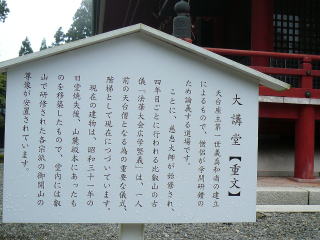 大講堂【重文】
天台座主第一世義真和尚の建立
によるもので、僧侶が学問研鑚の
ため論議する道場です。
ことに、慈恵大師が始修され、
四年目ごとに行われる比叡山の古
儀「法華大会広学竪義」は、一人
前の天台僧となる為の重要な儀式、
階梯として現在につづいています。
現在の建物は、昭和三十一年の
旧堂焼失後、山麓坂本にあったも
のを移築したもので、堂内には叡
山で研修された各宗派の御開山の
尊像が安置されています。